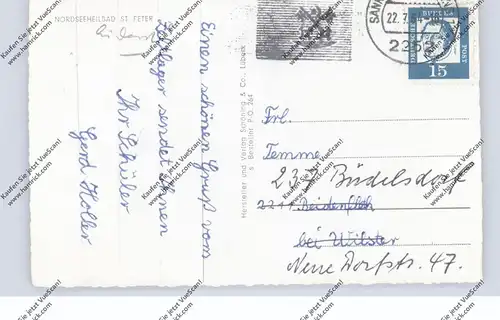 NORDSEEHEILBAD ST. PETER
Einen schönen Gruß vom
Zeltlager sendet Ihnen
Ihr Schüler
Gerd Holler
Hersteller und Verlag Schöning & Co., Lübeck
22.7.
2252
DEUTSCHE BUNDESPOST
15
Frl.
Temme
237 Büdelsdorf
2211 Beidenfleth
bei Wilster
Neue Dorfstr. 47.
Kaufen Sie jetzt VueScan!
www.hamrick.com